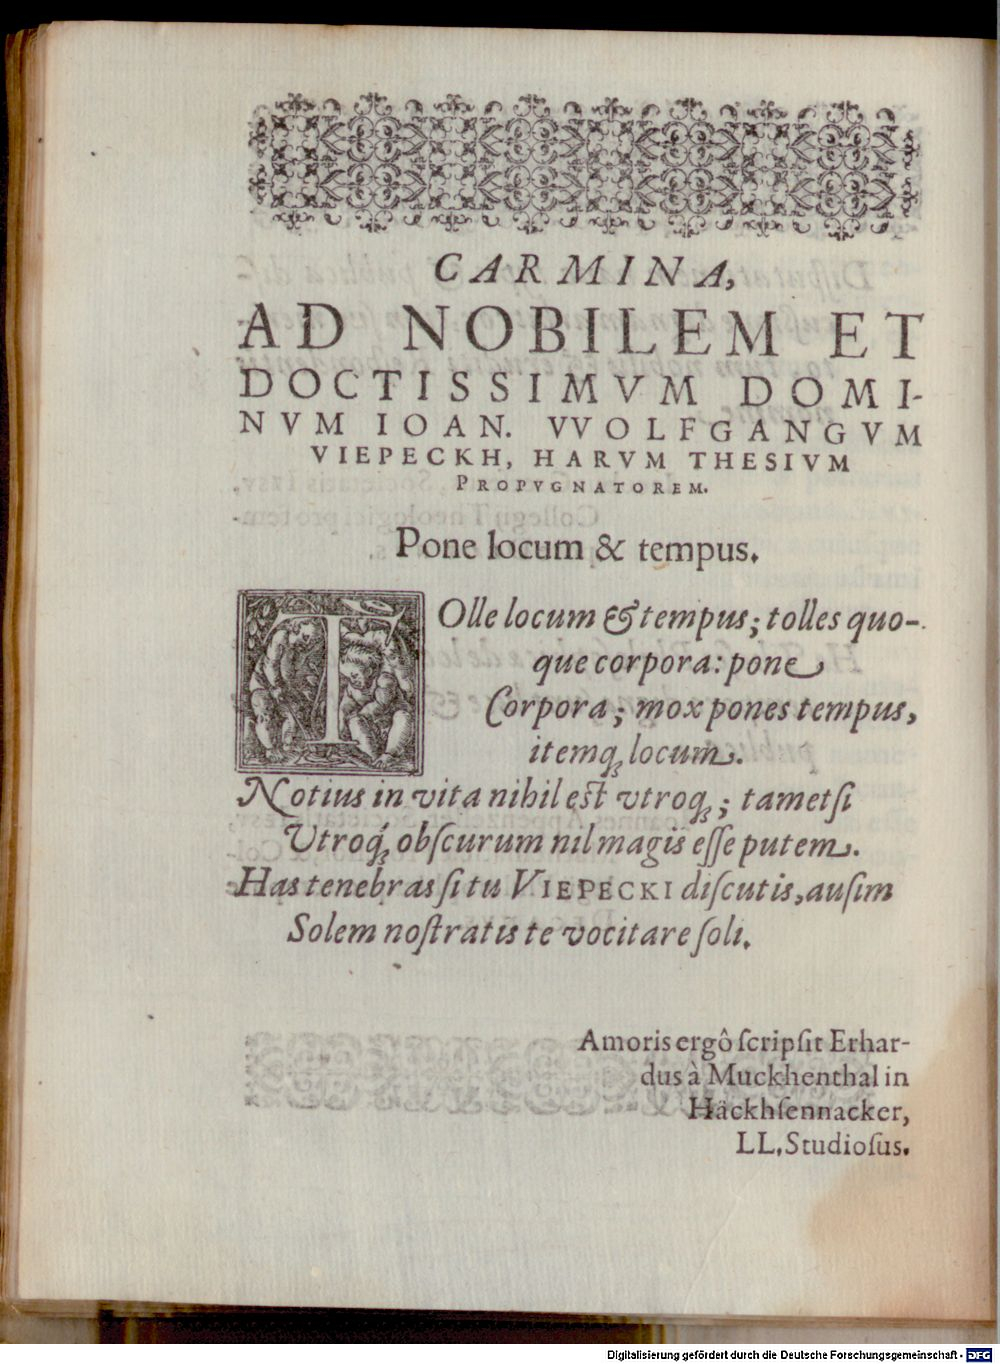 CARMINA,
AD NOBILEM ET
DOCTISSIMVM DOMI-
NVM IOAN. VVOLFGANGVM
VIEPECKH, HARVM THESIVM
PROPVGNATOREM.
Pone locum & tempus.
TOlle locum & tempus; tolles quo-
que corpora: pone
Corpora; mox pones tempus,
itemq́; locum.
Notius in vita nihil est vtroq́; tametsi
Vtroq́; obscurum nil magis esse putem.
Has tenebras si tu VIEPECKI discutis, ausim
Solem nostratis te vocitare soli.
Amoris ergô scripsit Erhar-
dus à Muckhenthal in
Häckhsennacker,
LL. Studiosus.
Digitalisierung gefördert durch die Deutsche Forschungsgemeinschaft - DFG